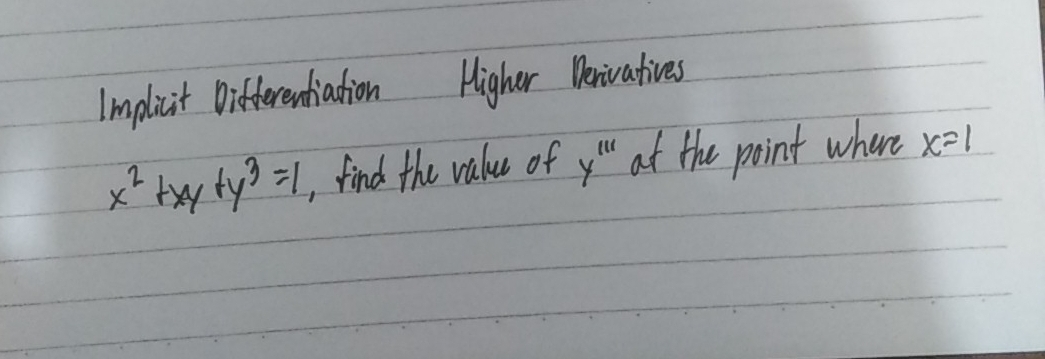 Implicit Differentiation Higher Derivatives
x² + xy + y³ = 1, find the value of y''' at the point where x=1